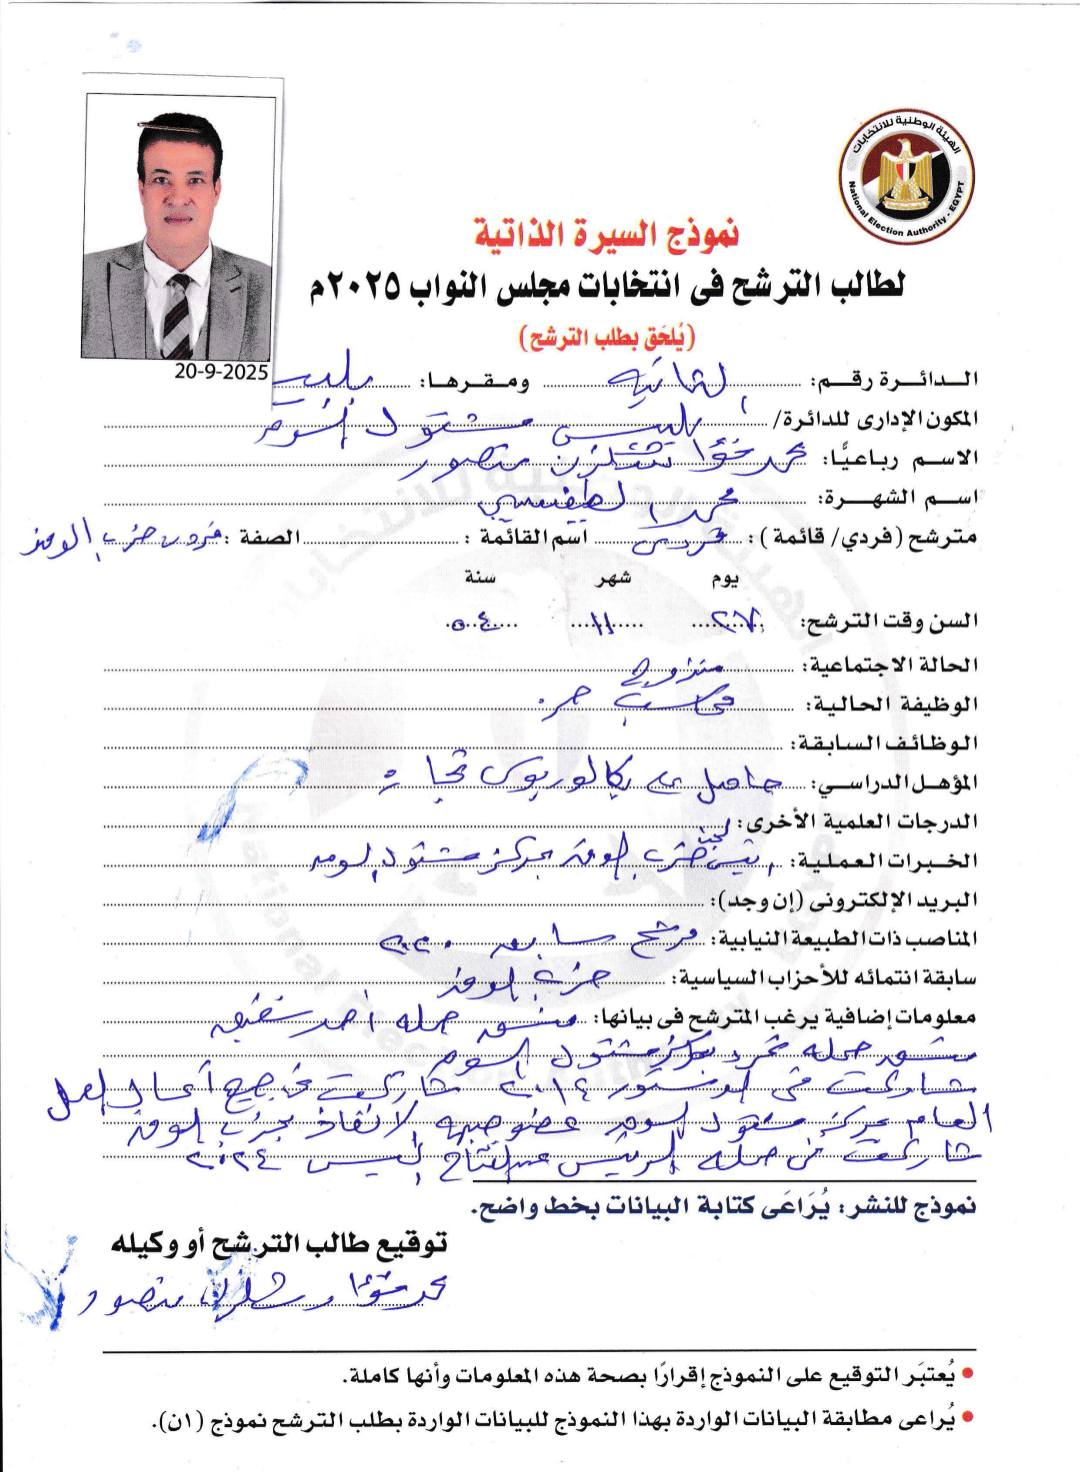 الهيئة الوطنية للانتخابات
National Election Authority - EGYPT
نموذج السيرة الذاتية
لطالب الترشح فى انتخابات مجلس النواب ٢٠٢٥م
(يُلحَق بطلب الترشح)
20-9-2025
الـدائـرة رقـم: الثانية ومـقـرهـا: بلبيس
المكون الإدارى للدائرة/ بلبيس مشتول السوق
الاسـم رباعيًّا: محمد منصور
اسـم الشهـرة: محمد
مترشح (فردي/ قائمة): فردى اسم القائمة: الصفة: فردى حزب الوفد
يوم شهر سنة
السن وقت الترشح: ٢٧ ١١ ٥٤
الحالة الاجتماعية: متزوج
الوظيفة الحالية: محاسب حر
الوظائف السابقة:
المؤهـل الدراسي: حاصل على بكالوريوس تجارة
الدرجات العلمية الأخرى:
الخـبـرات العملية: رئيس لجنة حزب الوفد بمركز مشتول السوق
البريد الإلكترونى (إن وجد):
المناصب ذات الطبيعة النيابية: مرشح سابق ٢٠٢٠
سابقة انتمائه للأحزاب السياسية: حزب الوفد
معلومات إضافية يرغب المترشح فى بيانها: منسق حملة أحمد شفيق
منسق حملة تمرد بمركز مشتول السوق
شاركت فى الدستور ٢٠١٤ شاركت فى جميع أعمال العمل
العام بمركز مشتول السوق عضو جبهة الانقاذ بحزب الوفد
شاركت فى حملة الرئيس عبدالفتاح السيسى ٢٠٢٤
نموذج للنشر: يُرَاعَى كتابة البيانات بخط واضح.
توقيع طالب الترشح أو وكيله
محمد منصور
• يُعتبَر التوقيع على النموذج إقرارًا بصحة هذه المعلومات وأنها كاملة.
• يُراعى مطابقة البيانات الواردة بهذا النموذج للبيانات الواردة بطلب الترشح نموذج (١ن).